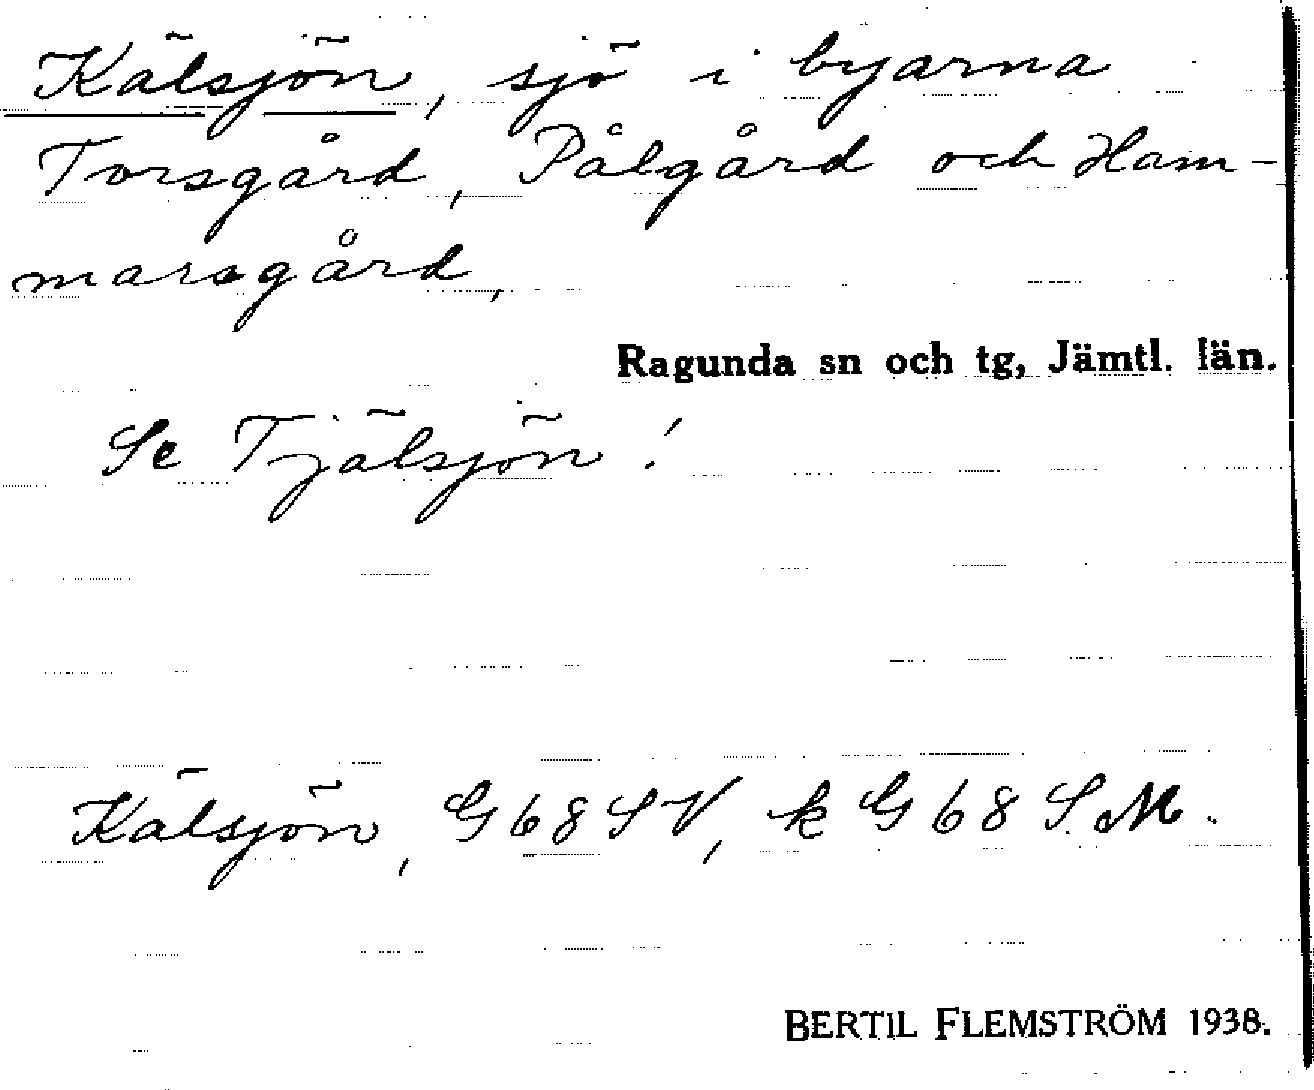 Kälsjön, sjö i byarna
Torsgård, Pålgård och Ham-
marsgård,
Ragunda sn och tg, Jämtl. län.
Se Tjälsjön!
Kälsjön, G68SV, k G68 S.M.
BERTIL FLEMSTRÖM 1938.